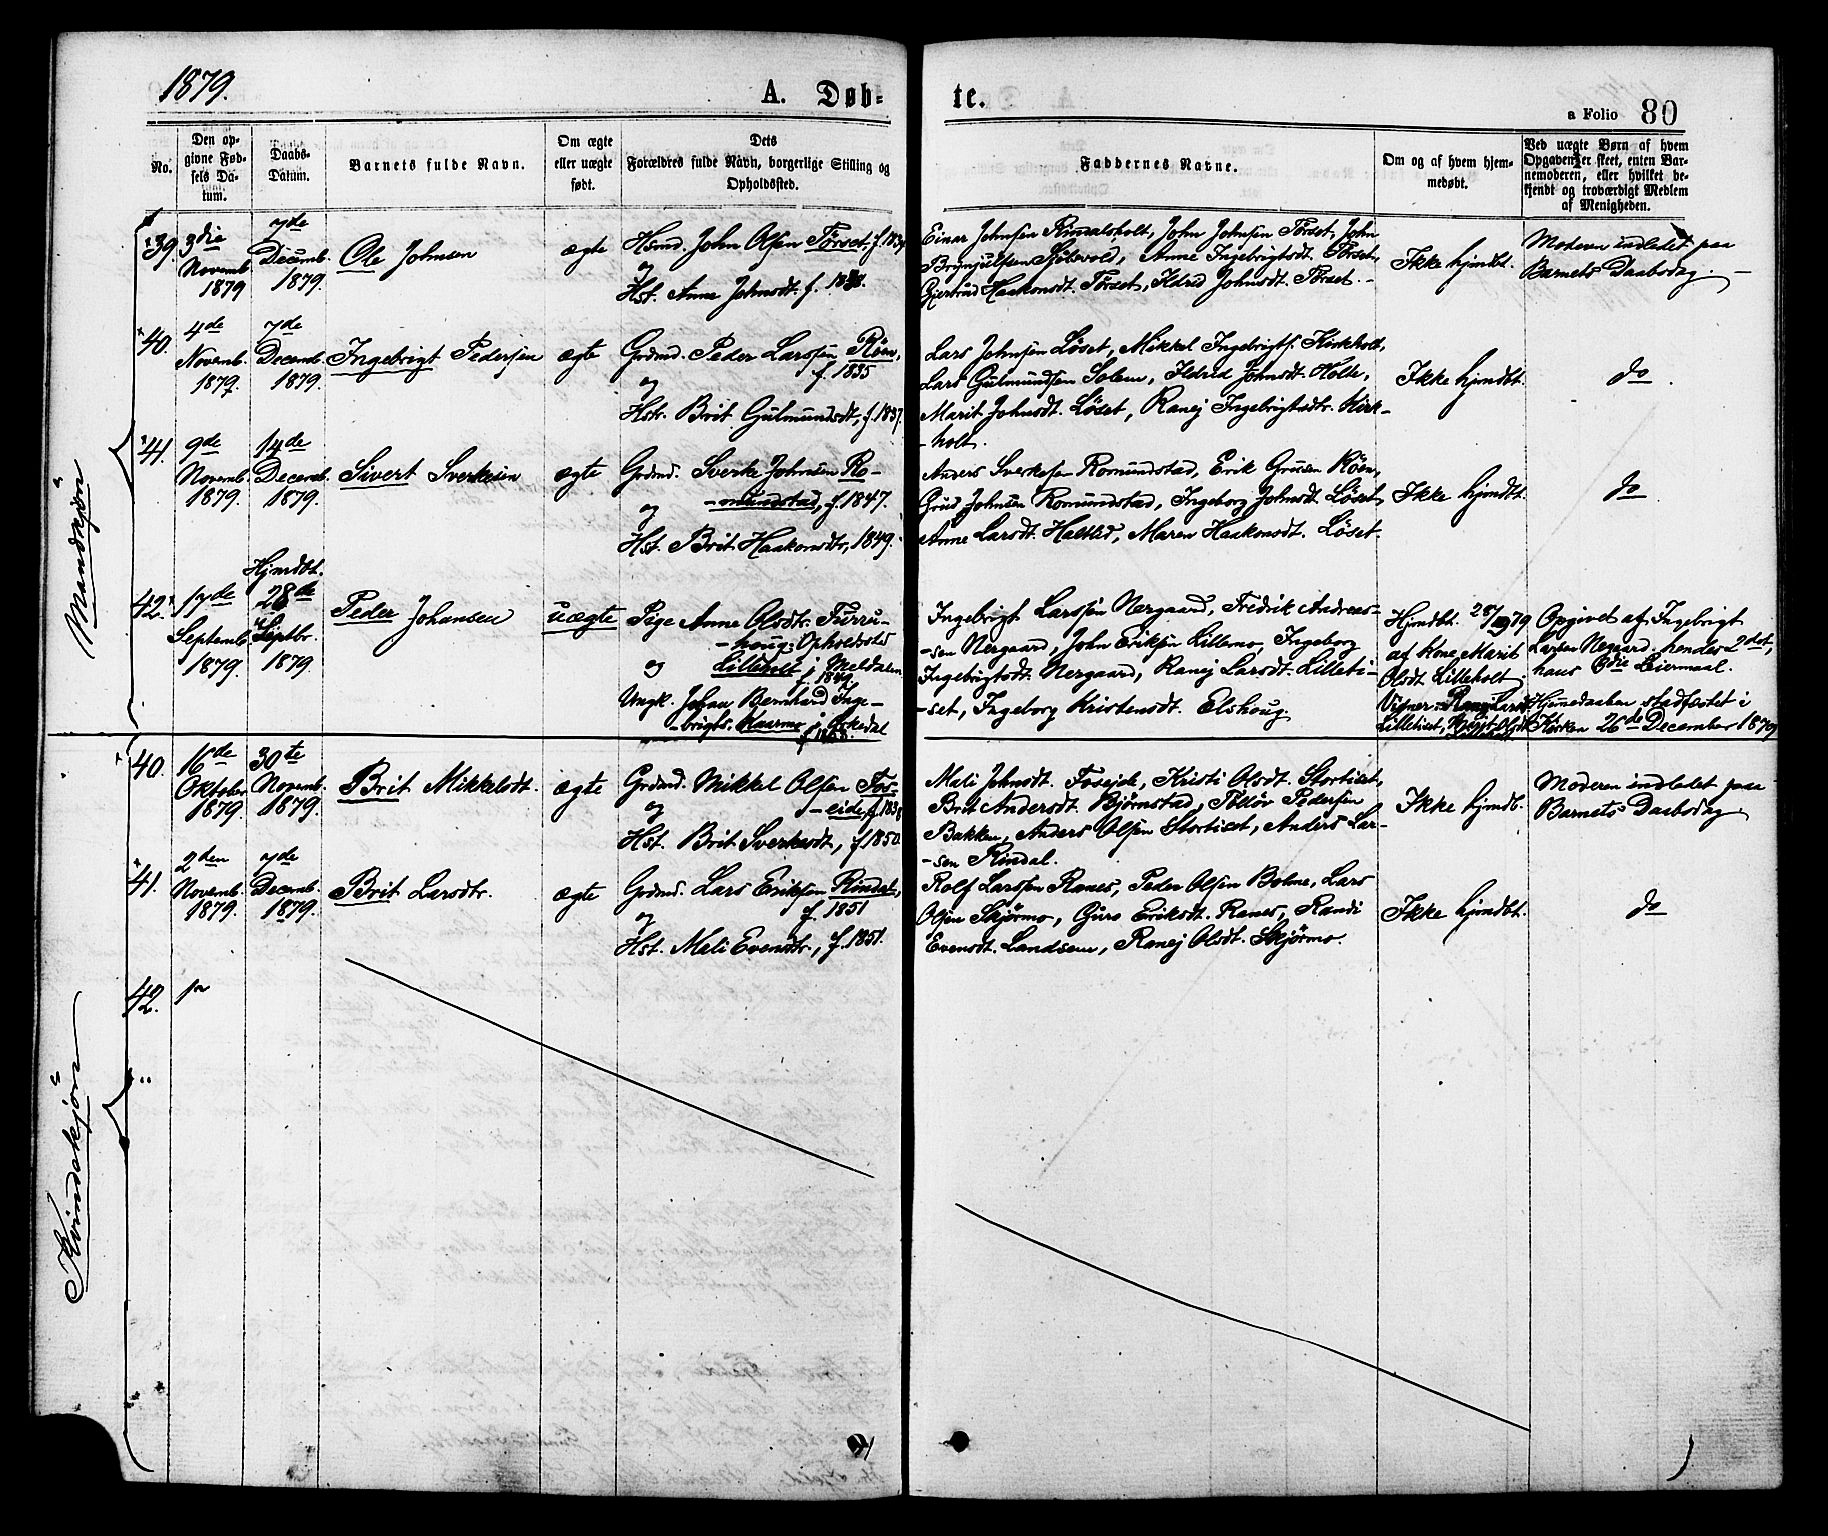 1879.
A. Døb-
te.
a Folio 80
No.
Den op-
givne Fød-
sels Da-
tum.
Daabs-
Datum.
Barnets fulde Navn.
Om ægte
eller uægte
født.
Dets
Forældres fulde Navn, borgerlige Stilling og
Opholdssted.
Faddernes Navne.
Om og af hvem hjem-
medøbt.
Ved uægte Børn af hvem
Opgaven er skeet, enten Bar-
nemoderen, eller hvilket be-
kjendt og troværdigt Medlem
af Menigheden.
Mandkjøn
39.
3die
Novemb.
1879
7de
Decemb.
1879.
Ole Johnsen
ægte
Hsmd. John Olsen Tørset, f.
og
Hst. Anne Johnsdt. f.
Einar Johnsen Rindalsholt, John Johnsen Tørset, John
Brynjulfsen Sjølsvold, Anne Ingebrigtsdt. Tørset,
Gjertrud Haakonsdt. Tørset, Ildrid Johnsdt. Tørset.
Ikke hjmdbt.
Moderen indledet paa
Barnets Daabsdag.
40.
4de
Novemb.
1879.
7de
Decemb.
1879.
Ingebrigt Pedersen
ægte
Grdmd. Peder Larssen Røen,
f. 1835
og
Hstr. Brit Gulmundsdt, f. 1837.
Lars Johnsen Løset, Mikkel Ingebrigts. Kirkholt,
Lars Gulmundsen Solem, Ildrid Johnsdt. Holte,
Marit Johnsdt. Løset, Ranej Ingebrigtsdtr. Kirk-
-holt.
Ikke hjmdbt.
do.
41.
9de
Novemb.
1879.
14de
Decemb.
1879.
Sivert Sverkesen
ægte
Grdmd. Sverke Johnsen Ro-
-mundstad, f. 1847.
og
Hst. Brit Haakonsdtr, 1849.
Anders Sverkesen Romundstad, Erik Grusen Røen,
Grud Johnsen Romundstad, Ingeborg Johnsdt. Løset,
Anne Larsdt. Halsted, Maren Haakonsdt. Løset.
Ikke hjmdbt.
do
42.
17de
Septemb.
1879.
Hjmdbt.
28de
Septbr.
1879.
Peder Johansen
uægte
Pige Anne Olsdtr. Furru-
-houg: Opholdssted
og Lilleholt i Meldalen
f. 1849.
Ungk. Johan Bernhard Inge-
-brigts. Kaarmo i Orkedal
Ingebrigt Larssen Nergaard, Fredrik Andreas-
-sen Nergaard, John Eriksen Lillemo, Ingeborg
Ingebrigtsdt. Nergaard, Ranej Larsdt. Lilleti-
-set, Ingeborg Kristensdt. Elshoug.
Hjmdbt. 28/9 1879
af Kone Marit
Olsdt Lilleholt.
Lilletiset, Marit Olsdt
Opgivet af Ingebrigt
Larsen Negaard, hendes 2det,
hans 3die Leiermaal.
Hjemmedaaben stadfæstet i
Kirken 26de December 1879
Kvindekjøn
40.
16de
Oktober
1879.
30te
Novemb.
1879.
Brit Mikkelsdt.
ægte
Grdmd. Mikkel Olsen Fos-
-eide, f. 1838
og
Hst. Brit Sverkesdt, f. 1850.
Mali Johnsdt. Fosejde, Kristi Olsdt. Stortiset,
Brit Andersdt. Bjørnstad, Tollöv Pedersen
Bakken, Anders Olsen Stortiset, Anders Lar-
-sen Rindal.
Ikke hjmdb.
Moderen indledet paa
Barnets Daabsdag
41.
2den
Novemb.
1879.
7de
Decemb.
1879.
Brit Larsdtr.
ægte
Grdmd. Lars Eriksen Rindal,
f. 1851
og
Hst. Mali Evensdtr., f. 1851.
Rolf Larssen Ranes, Peder Olsen Bolme, Lars
Olsen Skjørmo, Guro Eriksdt. Ranes, Randi
Evensdt. Landsem, Ranej Olsdt. Skjørmo.
Ikke hjmdbt.
do
42.